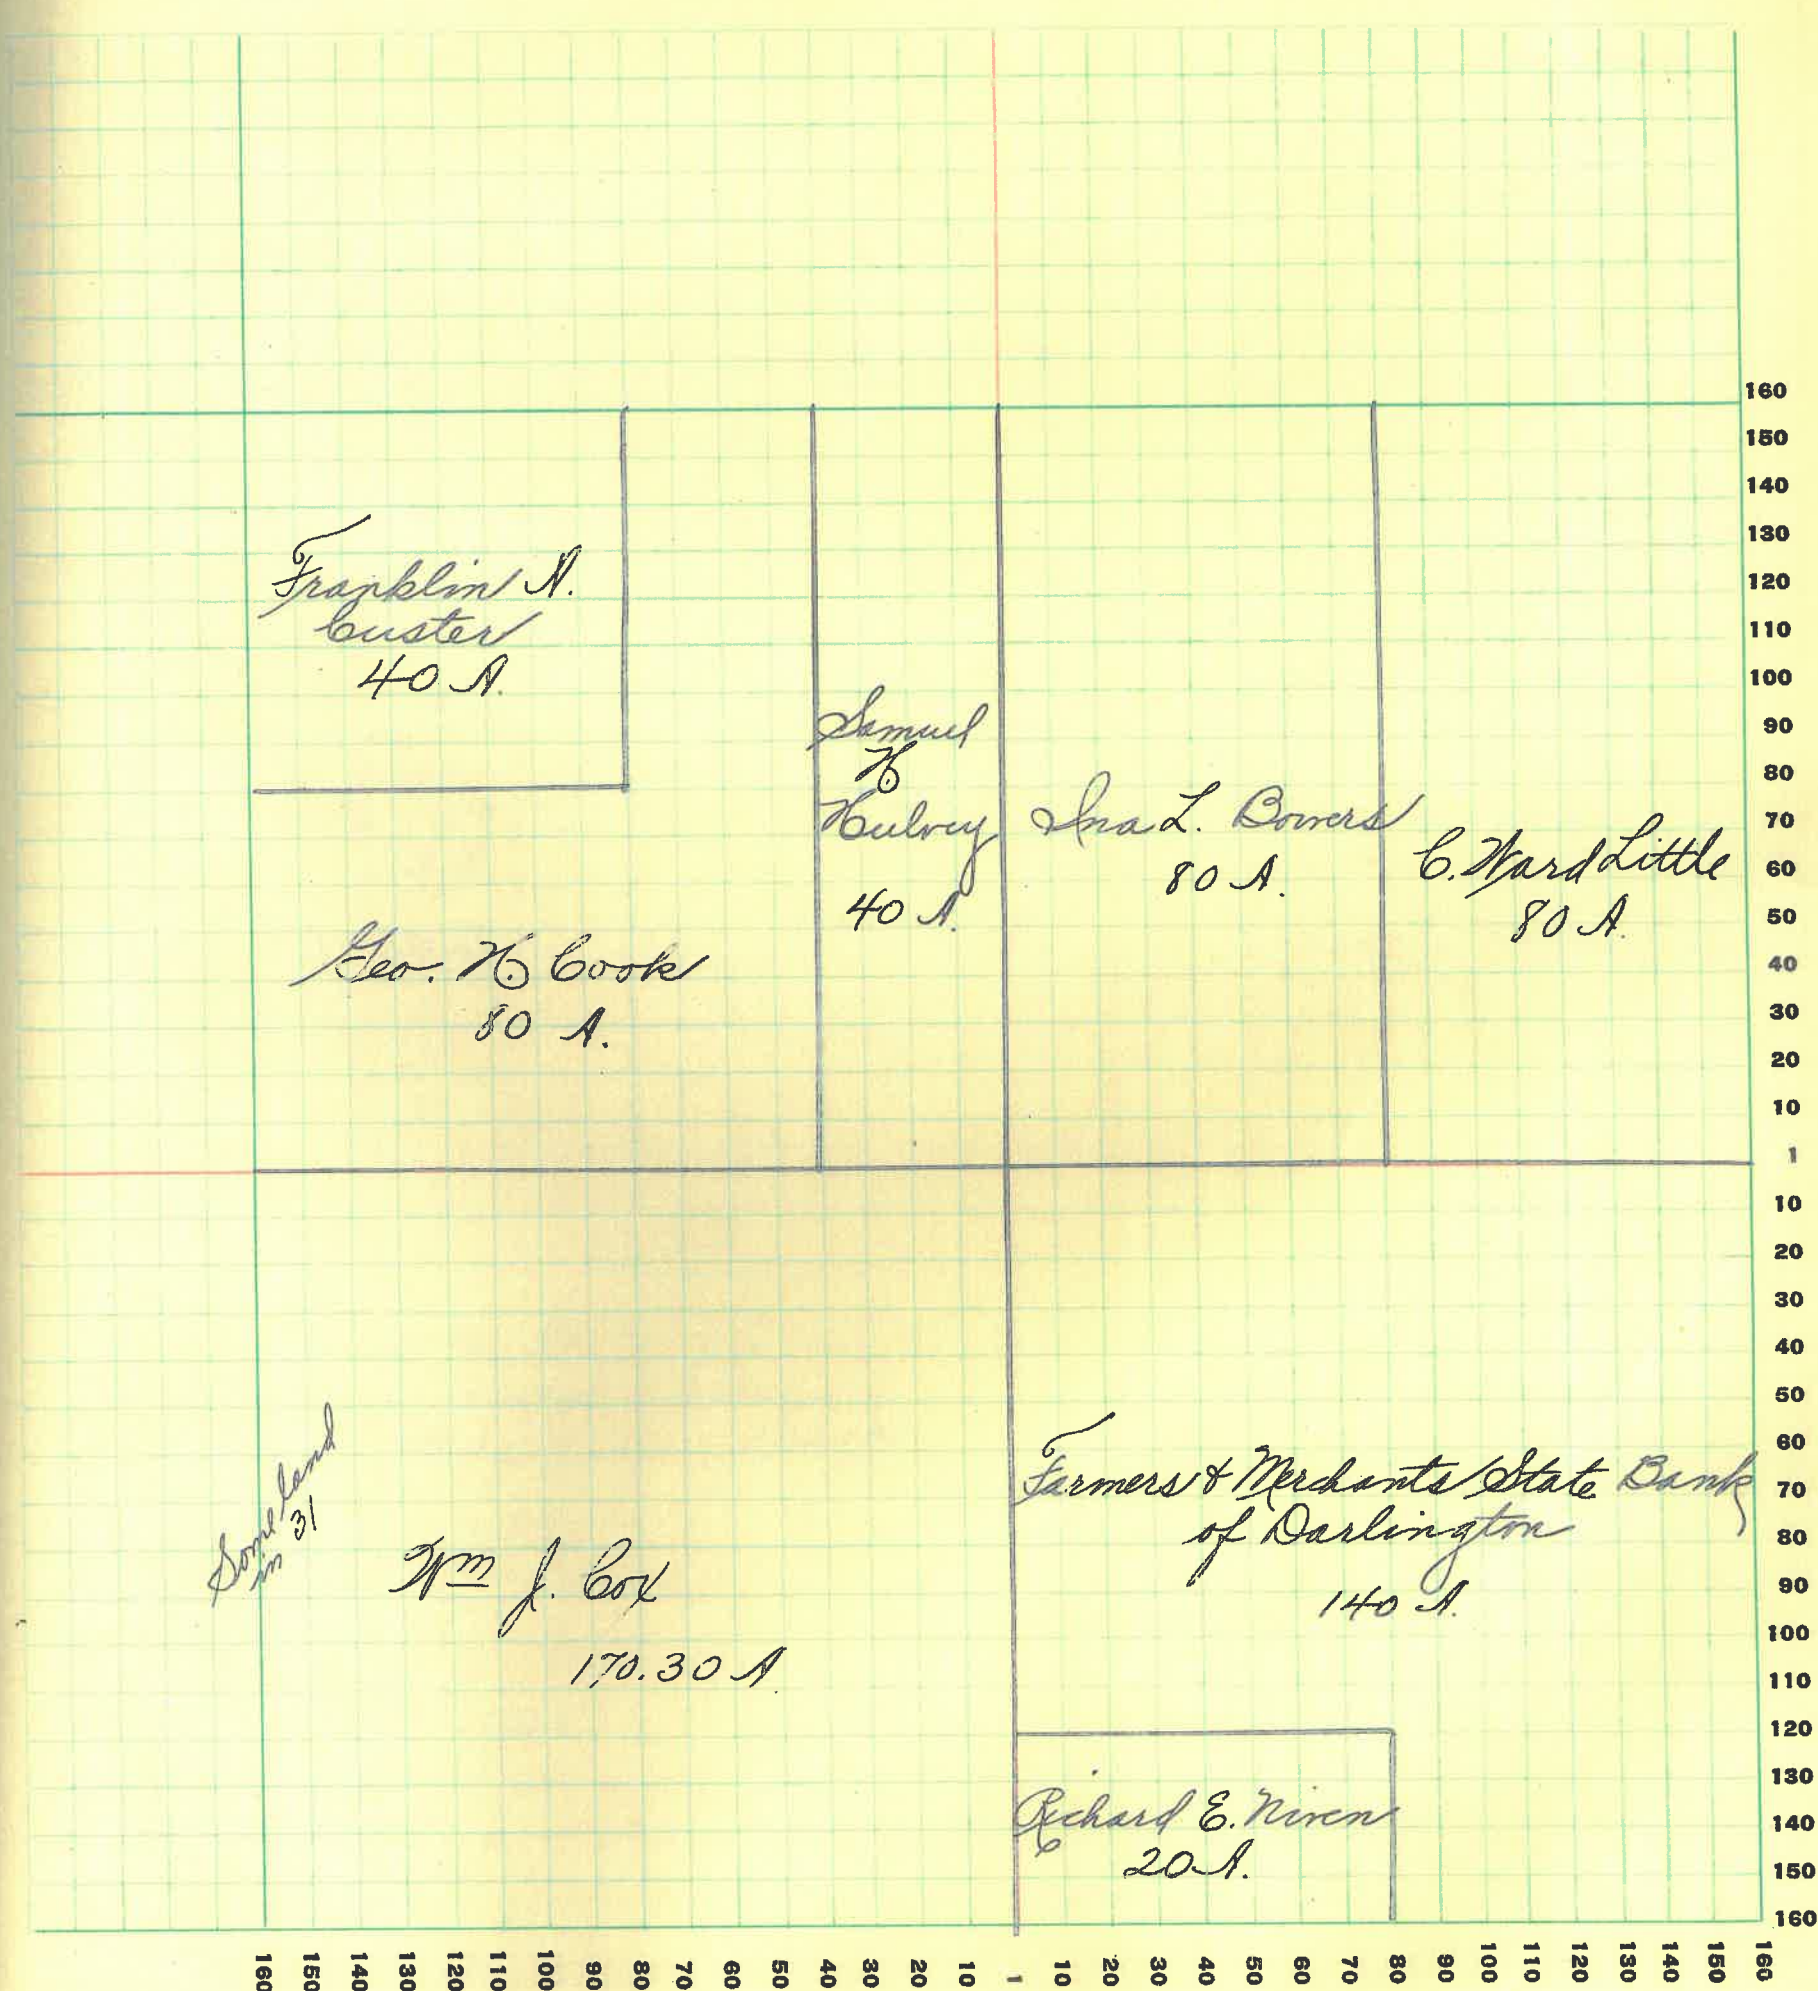 Franklin A.
Custer
40 A.
Samuel
H
Hulvey
40 A.
Ina L. Bowers
80 A.
C. Ward Little
80 A.
Geo. H. Cook
80 A.
Some land
in 31
Wm J. Cox
170.30 A
Farmers & Merchants State Bank
of Darlington
140 A.
Richard E. Niven
20 A.
160
150
140
130
120
110
100
90
80
70
60
50
40
30
20
10
1
10
20
30
40
50
60
70
80
90
100
110
120
130
140
150
160
160 150 140 130 120 110 100 90 80 70 60 50 40 30 20 10 1 10 20 30 40 50 60 70 80 90 100 110 120 130 140 150 160